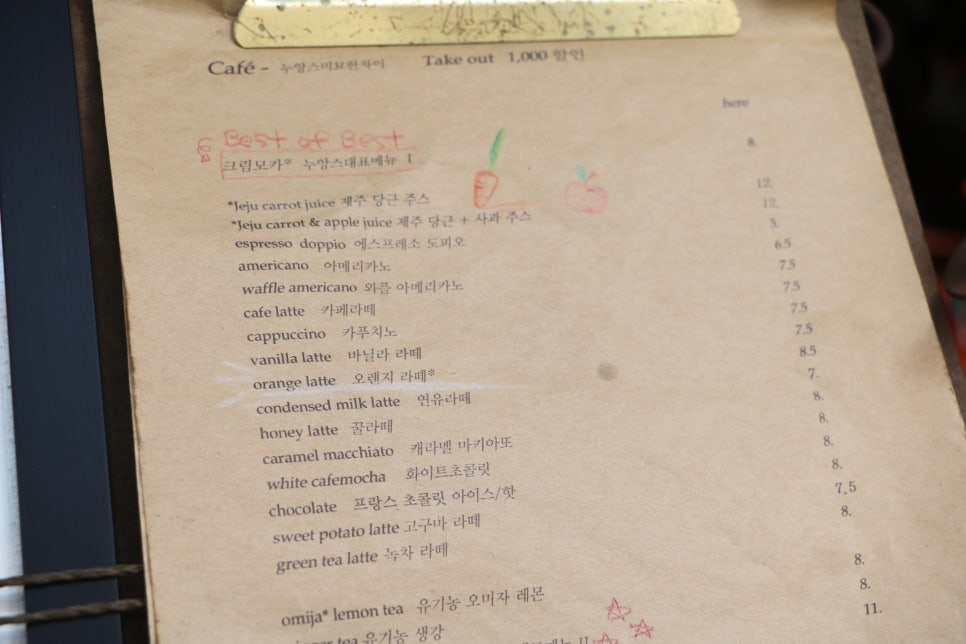 Café - 누앙스미묘한차이 Take out 1,000 할인
here
Best of Best
크림모카* 누앙스대표메뉴 I 8.
*Jeju carrot juice 제주 당근 주스 12.
*Jeju carrot & apple juice 제주 당근 + 사과 주스 12.
espresso doppio 에스프레소 도피오 5.
americano 아메리카노 6.5
waffle americano 와플 아메리카노 7.5
cafe latte 카페라떼 7.5
cappuccino 카푸치노 7.5
vanilla latte 바닐라 라떼 7.5
orange latte 오렌지 라떼* 8.5
condensed milk latte 연유라떼 7.
honey latte 꿀라떼 8.
caramel macchiato 캐라멜 마키아또 8.
white cafemocha 화이트초콜릿 8.
chocolate 프랑스 초콜릿 아이스/핫 8.
sweet potato latte 고구마 라떼 7.5
green tea latte 녹차 라떼 8.
omija* lemon tea 유기농 오미자 레몬 8.
ginger tea 유기농 생강 8.
11.